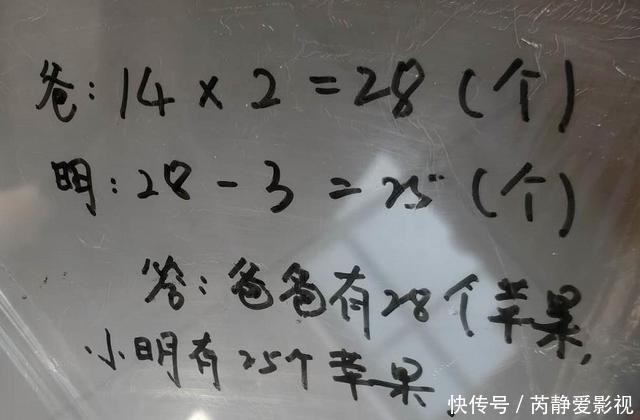 爸:14×2=28(个)
明:28-3=25(个)
答:爸爸有28个苹果,
小明有25个苹果
快传号/芮静爱影视